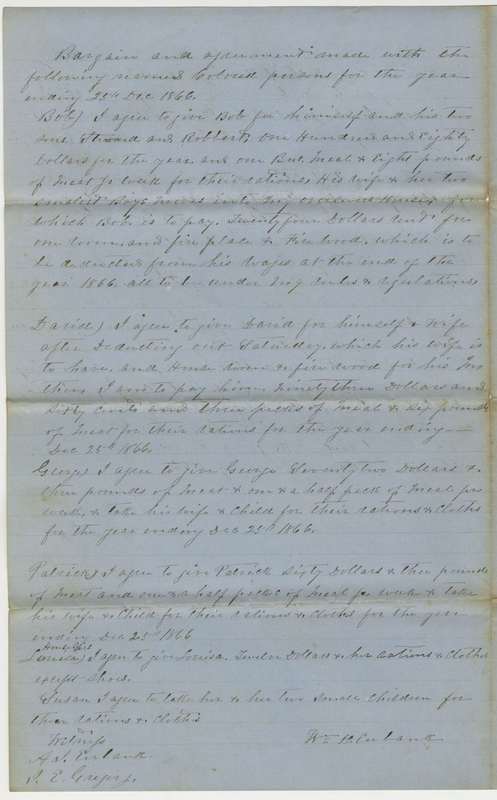 Bargain and agreement made with the
following named Colored persons for the year
ending 25th Dec 1866.
Bob) I agree to give Bob for himself and his two
sons and Robbert, One Hundred and Eighty
Dollars for the year and one Bus. Meal & Eight pounds
of Meat pr week for their rations. His wife & her two
smalest Boys moves into my House, for
which Bob is to pay Twenty four Dollars rent for
one room and fire place & Fire wood, which is to
be deducted from his Wages at the end of the
year 1866. all to be under my rules & regulations
David) I agree to give David for himself & Wife
after Deducting out Saturday, which his wife is
to have, and House room & fire wood for his
I am to pay him Ninety three Dollars and
Sixty cents and three pecks of meal & six pounds
of Meat for their rations for the year ending
Dec 25th 1866.
George) I agree to give George Seventy two Dollars &
three pounds of Meat & one & a half peck of Meal per
week, & take his wife & Child for their rations & Cloths
for the year ending Dec 25th 1866.
Patrick) I agree to give Patrick Sixty Dollars & three pounds
of Meat and one & a half pecks of meal pr week & take
his wife & Child for their rations & Cloths for the year
ending Dec 25th 1866
Louisa) I agree to give Louisa Twelve Dollars & her rations & Clothes
except shoes.
Susan I agree to take her & her two small Children for
their rations & Cloths
Witness
Wm P. Eubank
Eubank
J. E.